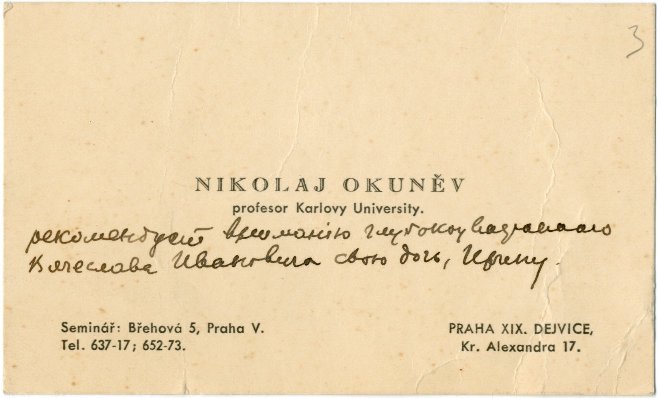 3
NIKOLAJ OKUNĚV
profesor Karlovy University.
рекомендует вниманію глубокоуважаемаго
Вячеслава Ивановича свою дочь, Ирину.
Seminář: Břehová 5, Praha V.
Tel. 637-17; 652-73.
PRAHA XIX. DEJVICE,
Kr. Alexandra 17.